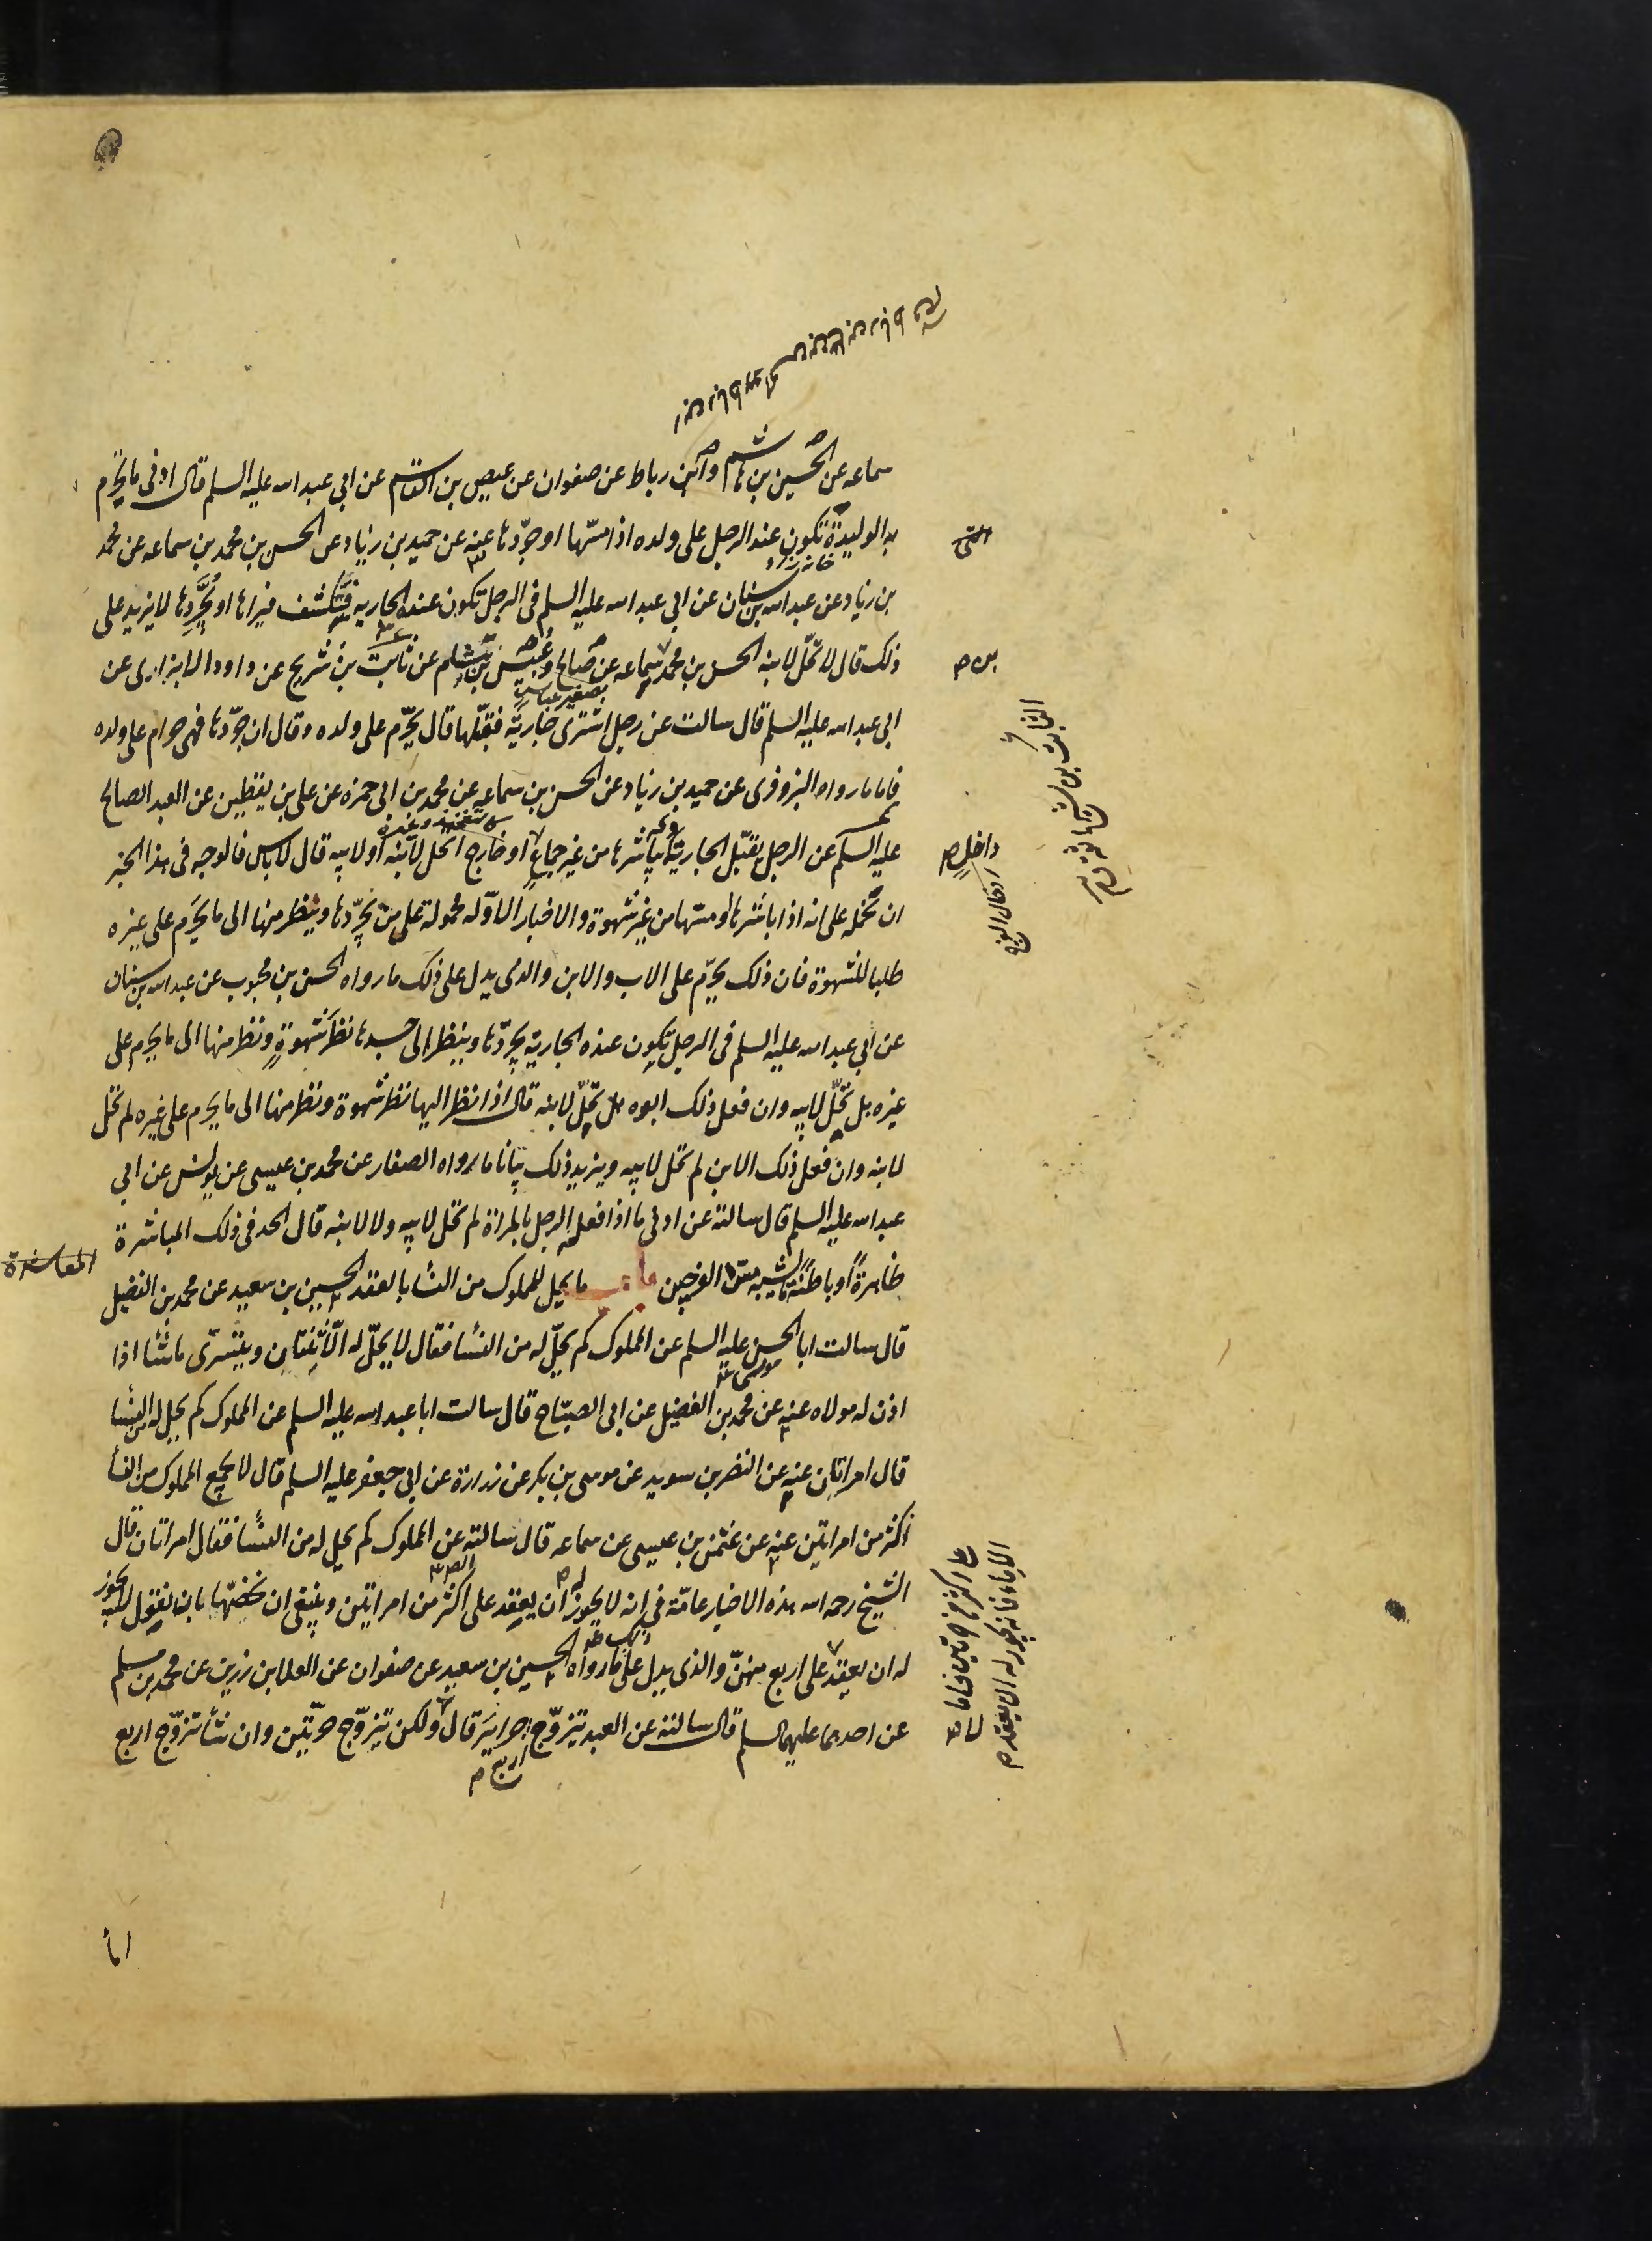 سماعه عن الحسين بن هاشم وابن رباط عن صفوان عن عيص بن القاسم عن ابى عبد الله عليه السلم قال ادنى ما يحرم
به الوليدة تكون عند الرجل على ولده اذا مسّها او جرّدها عنه عن حميد بن زياد عن الحسن بن محمد بن سماعه عن محمد
بن زياد عن عبد الله بن سنان عن ابى عبد الله عليه السلم فى الرجل تكون عنده الجاريه فتكشف فيراها او يجرّدها لا يزيد على
ذلك قال لا تحلّ لابنه الحسن بن محمد بن سماعه عن صالح وعبيس بن هشام عن ثابت بن شريح عن داود الابزارى عن
ابى عبد الله عليه السلم قال سالت عن رجل اشترى جارية فقبّلها قال يحرّم على ولده وقال ان جرّدها فهى حرام على ولده
فاما ما رواه البزوفرى عن حميد بن زياد عن الحسن بن سماعه عن محمد بن ابى حمزه عن على بن يقطين عن العبد الصالح
عليه السلم عن الرجل يقبّل الجارية يباشرها من غير جماع او خارج اتحل لابنه او لابيه قال لا باس فالوجه فى هذا الخبر
ان نحمله على انه اذا باشرها او مسّها من غير شهوة والاخبار الاوّله محمولة على من يجرّدها وينظر منها الى ما يحرم على غيره
طلبا للشهوة فان ذلك يحرّم على الاب والابن والذى يدل على ذلك ما رواه الحسن بن محبوب عن عبد الله بن سنان
عن ابى عبد الله عليه السلم فى الرجل تكون عنده الجارية يجرّدها وينظر الى جسدها نظر شهوة ونظر منها الى ما يحرم على
غيره هل تحلّ لابيه وان فعل ذلك ابوه هل تحلّ لابنه قال اذا نظر اليها نظر شهوة ونظر منها الى ما يحرم على غيره لم تحل
لابنه وان فعل ذلك الابن لم تحل لابيه ويزيد ذلك بيانا ما رواه الصفار عن محمد بن عيسى عن يونس عن ابى
عبد الله عليه السلم قال سالته عن ادنى ما اذا فعله الرجل بالمراة لم تحل لابيه ولا لابنه قال الحد فى ذلك المباشرة
ظاهرة او باطنة مما يشبه مسّ الفرجين باب ما يحل للمملوك من النسا بالعقد الحسين بن سعيد عن محمد بن الفضيل
قال سالت ابا الحسن عليه السلم عن المملوك كم يحلّ له من النسا فقال لا يحلّ له الّا ثنتان ويتسرّى ما شا اذا
اذن له مولاه عنه عن محمد بن الفضيل عن ابى الصبّاح قال سالت ابا عبد الله عليه السلم عن المملوك كم يحل له من النسا
قال امراتان عنه عن النضر بن سويد عن موسى بن بكر عن زرارة عن ابى جعفر عليه السلم قال لا يجمع المملوك من النسا
اكثر من امراتين عنه عن عثمن بن عيسى عن سماعه قال سالته عن المملوك كم يحل له من النسا فقال امراتان قال
الشيخ رحمه الله هذه الاخبار عامّة فى انه لا يجوز له ان يعقد على اكثر من امراتين وينبغى ان نخصّها بان نقول لا يجوز
له ان يعقد على اربع منهنّ والذى يدل على ذلك ما رواه الحسين بن سعيد عن صفوان عن العلا بن رزين عن محمد بن مسلم
عن احدهما عليهما السلم قال سالته عن العبد يتزوّج اربع حراير قال لا ولكن يتزوّج حرّتين وان شا تزوّج اربع
اما
داخل